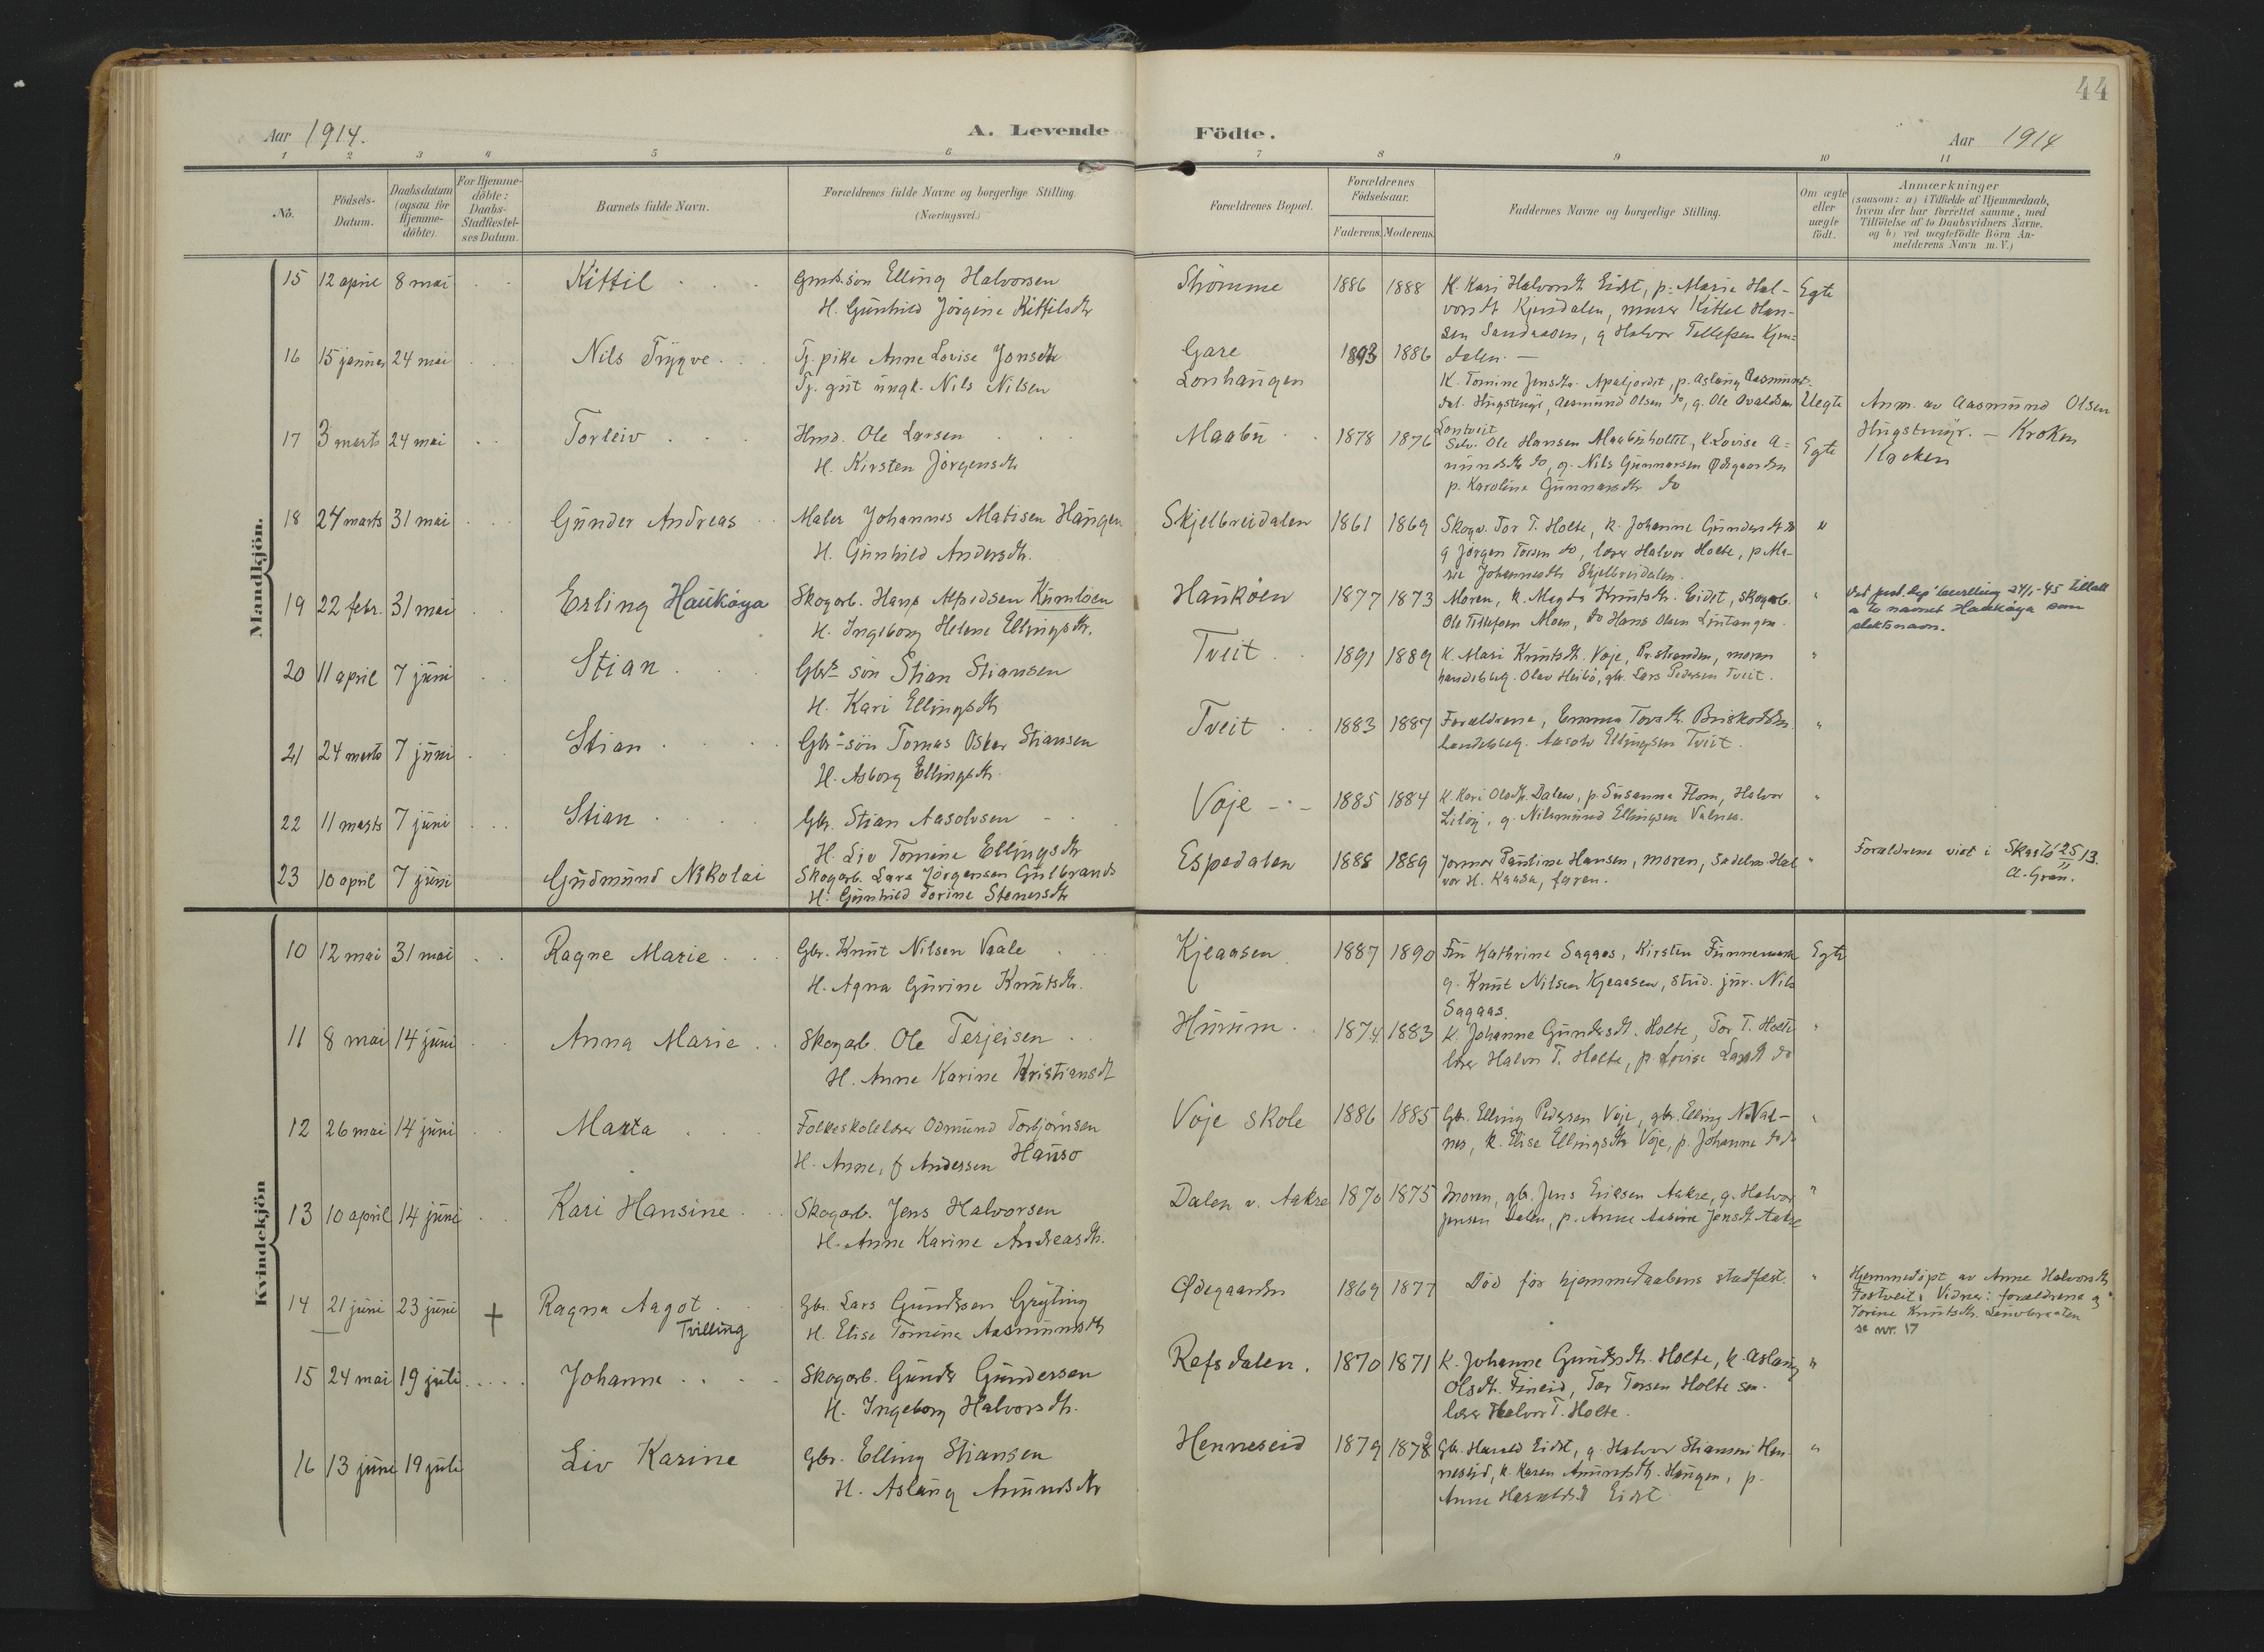 44
Aar 1914.
A. Levende Födte.
Aar 1914
1 2 3 4 5 6 7 8 9 10 11
No.
Födsels-
Datum.
Daabsdatum
(ogsaa for
Hjemme-
döbte).
For Hjemme-
döbte:
Daabs-
Stadfæstel-
ses Datum.
Barnets fulde Navn.
Forældrenes fulde Navne og borgerlige Stilling.
(Næringsvei.)
Forældrenes Bopæl.
Forældrenes
Födselsaar.
Faderens. Moderens.
Faddernes Navne og borgerlige Stilling.
Om ægte
eller
uægte
födt.
Anmærkninger
(saasom: a) i Tilfælde af Hjemmedaab,
hvem der har forrettet samme, med
Tilföielse af to Daabsvidners Navne.
og b) ved uægtefödte Börn An-
melderens Navn m. V.)
Mandkjön.
15 12 april 8 mai Kittil Gmds. sön Elling Halvorsen
H. Gunhild Jörgine Kittilsdtr
Strömme 1886 1888 K. Kari Halvorsdt Eidst, p. Marie Hal-
vorsdt, murer Kittel Han-
sen Sandaasen, g Halvor Tellefsen
dalen. Egte
16 15 januar 24 mai Nils Trygve Tj. pike Anne Lovise Jonsdtr
Tj. gut ungk. Nils Nilsen
Gare
Lonhaugen
1893 1886 K. Tomine Jensdtr. Apaljordet, p. Aslaug Aasmunds-
dat. Hugstmyr, Aasmund Olsen do, g. Ole Ovaldsen
Lontveit Uegte
Anm. av Aasmund Olsen
Hugstmyr. — Kroken
Kroken
17 3 marts 24 mai Torleiv Hmd. Ole Larsen
H. Kirsten Jörgensdtr
Maabu 1878 1876 Selv. Ole Hansen Maabuholtet, k. Lovise A-
mundsdtr do, g. Nils Gunnarsen Ødegaarden
p. Karoline Gunnarsdtr do Egte
18 24 marts 31 mai Gunder Andreas Maler Johannes Matisen Haugen
H. Gunhild Andersdtr.
Skjelbreidalen 1861 1869 Skogv. Tor T. Holte, k. Johanne Gundersdt do
g Jörgen Torsen do, lærer Halvor Holte, p. Ma-
rie Johannesdtr Skjelbreidalen. "
19 22 febr. 31 mai Erling Haukøya Skogarb. Hans Alfredsen Kumlöen
H. Ingeborg Helene Ellingsdtr.
Hauköen 1877 1873 Moren, k. Magda Knutsdtr. Eidst, skogarb.
Ole Tellefsen Moen, do Hans Olsen Lintangen. "
Ved just. dep' bevilling 24/1-45 tillatt
a ta navnet Haukøya som
slektsnavn.
20 11 april 7 juni Stian Gbr.s sön Stian Stiansen
H. Kari Ellingsdtr
Tveit 1891 1889 K. Mari Knutsdtr. Voje, moren
handelsbetj. Olav Heibö, gbr. Lars Pedersen Tveit. "
21 24 marts 7 juni Stian Gbr.s-sön Tomas Oskar Stiansen
H. Asborg Ellingsdtr.
Tveit 1883 1887 Forældrene, Emma Torsdtr.
handelsbetj. Aasolv Ellingsen Tveit. "
22 11 marts 7 juni Stian Gbr. Stian Aasolvsen
H. Liv Tomine Ellingsdtr
Voje 1885 1884 K. Kari Olsdtr. Dalen, p. Susanna Flom, Halvor
Liöy, g. Nilsmund Ellingsen Valnes. "
23 10 april 7 juni Gudmund Nikolai Skogarb. Lars Jörgensen Gulbrands
H. Gunhild Torine Stenersdtr
Espedalen 1888 1889 Jormor Pauline Hansen, moren, Sadelm. Hal
vor H. Kaasa, faren. "
Forældrene viet i Skaatö 25/11 13.
A. Gran.
Kvindekjön
10 12 mai 31 mai Ragne Marie Gbr. Knut Nilsen Vaale
H. Agna Gurine Knutsdtr.
Kjeaasen 1887 1890 Fru Kathrine Sagaas, Kirsten Finnemark
g. Knut Nilsen Kjeaasen, stud. jur. Nils
Sagaas. Egte
11 8 mai 14 juni Anna Marie Skogarb. Ole Terjeisen
H. Anne Karine Kristiansdt
Hurum 1874 1883 K. Johanne Gundersdt. Holte, Tor T. Holte
lærer Halvor T. Holte, p. Lovise Larsdt do "
12 26 mai 14 juni Marta Folkeskolelærer Odmund Torbjörnsen
Hauso
H. Anne, f Andersen
Voje skole 1886 1885 Gbr. Elling Pedersen Voje, gbr. Elling N. Val-
nes, k. Elise Ellingsdtr Voje, p. Johanne dodo "
13 10 april 14 juni Kari Hansine Skogarb. Jens Halvorsen
H. Anne Karine Andreasdtr.
Dalen v. Aakre 1870 1875 Moren, gbr. Jens Eriksen Aakre, g. Halvor
Jensen Dalen, p. Anne Aasine Jensdt. Aakre "
14 21 juni 23 juni + Ragna Aagot
Tvilling
Gbr. Lars Gundersen Gryting
H. Elise Tomine Aasmundsdtr
Ødegaarden 1869 1877 Död för hjemmedaabens stadfæst. "
Hjemmedöpt av Anne Halvorsdtr
Tostveit. Vidner: forældrene og
Torine Knutsdtr.
se nr. 17
15 24 mai 19 juli Johanne Skogarb. Gunder Gundersen
H. Ingeborg Halvorsdtr.
Refsdalen. 1870 1871 K. Johanne Gundersdtr. Holte, k. Aslaug
Olsdtr. Fineid, Tor Torsen Holte sen.
lærer Halvor T. Holte. "
16 13 juni 19 juli Liv Karine Gbr. Elling Stiansen
H. Aslaug Amundsdtr
Henneseid 1879 1878 Gbr. Harald Eidst, g. Halvor Stiansen Hen-
neseid, k. Karen Amundsdtr. Haugen, p.
Anne Haraldsdt Eidst "